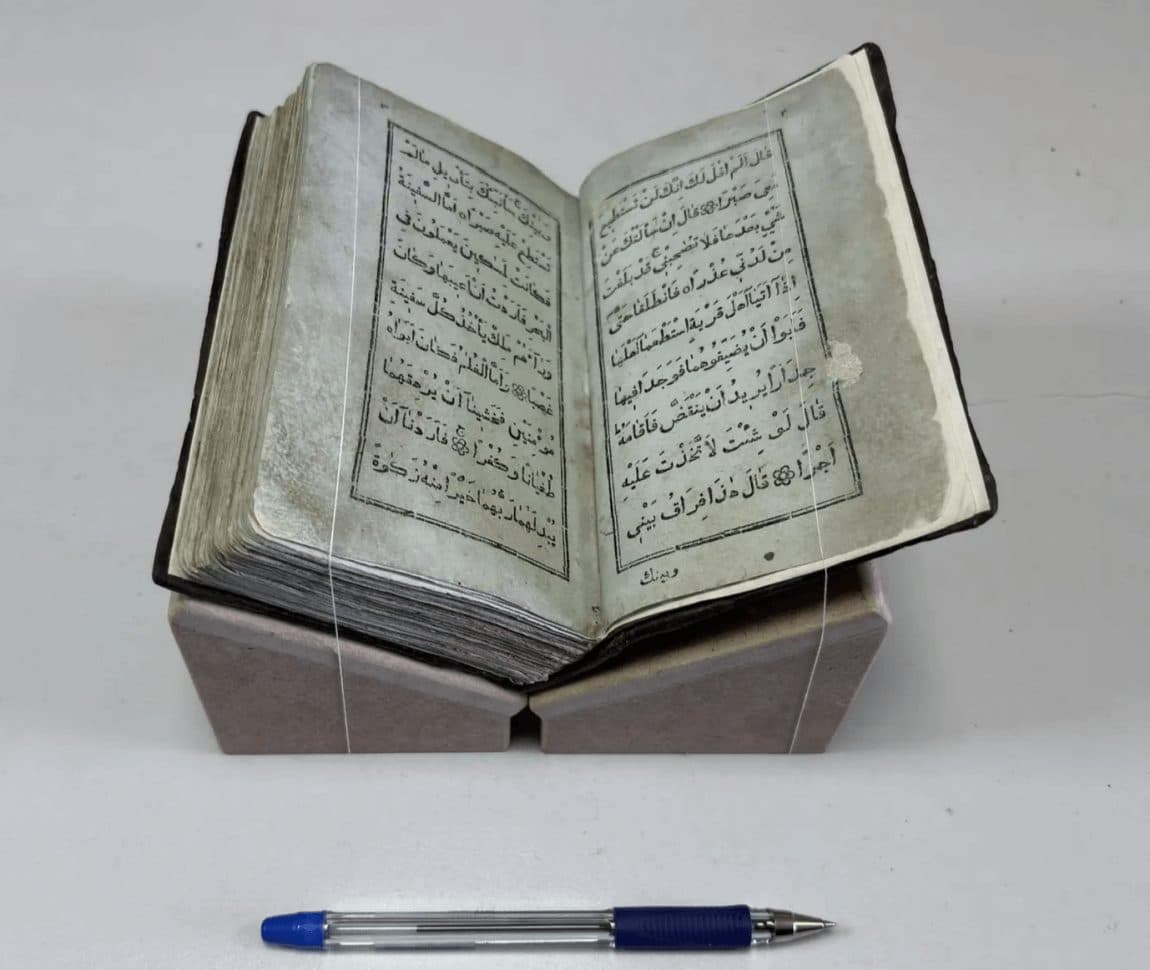 قَالَ اَلَمْ اَقُلْ لَكَ اِنَّكَ لَنْ تَسْتَطِيعَ
مَعِىَ صَبْرًا ۞ قَالَ اِنْ سَاَلْتُكَ عَنْ
شَىْءٍ بَعْدَهَا فَلَا تُصَاحِبْنِى ج قَدْ بَلَغْتَ
مِنْ لَدُنِّى عُذْرًا ه فَانْطَلَقَا حَتّٰى
اِذَا اَتَيَا اَهْلَ قَرْيَةٍ اِسْتَطْعَمَا اَهْلَهَا
فَاَبَوْا اَنْ يُضَيِّفُوهُمَا فَوَجَدَا فِيهَا
جِدَارًا يُرِيدُ اَنْ يَنْقَضَّ فَاَقَامَهُ ط
قَالَ لَوْ شِئْتَ لَاتَّخَذْتَ عَلَيْهِ
اَجْرًا ۞ قَالَ هٰذَا فِرَاقُ بَيْنِى
وبينك
وَبَيْنِكَ ج سَاُنَبِّئُكَ بِتَاْوِيلِ مَا لَمْ
تَسْتَطِعْ عَلَيْهِ صَبْرًا ه اَمَّا السَّفِينَةُ
فَكَانَتْ لِمَسٰكِينَ يَعْمَلُونَ فِى
الْبَحْرِ فَاَرَدْتُ اَنْ اَعِيبَهَا وَكَانَ
وَرَآءَهُمْ مَلِكٌ يَاْخُذُ كُلَّ سَفِينَةٍ
غَصْبًا ۞ وَاَمَّا الْغُلٰمُ فَكَانَ اَبَوَاهُ
مُؤْمِنَيْنِ فَخَشِينَا اَنْ يُرْهِقَهُمَا
طُغْيَانًا وَكُفْرًا ج ۞ فَاَرَدْنَا اَنْ
يُبْدِلَهُمَا رَبُّهُمَا خَيْرًا مِنْهُ زَكٰوةً